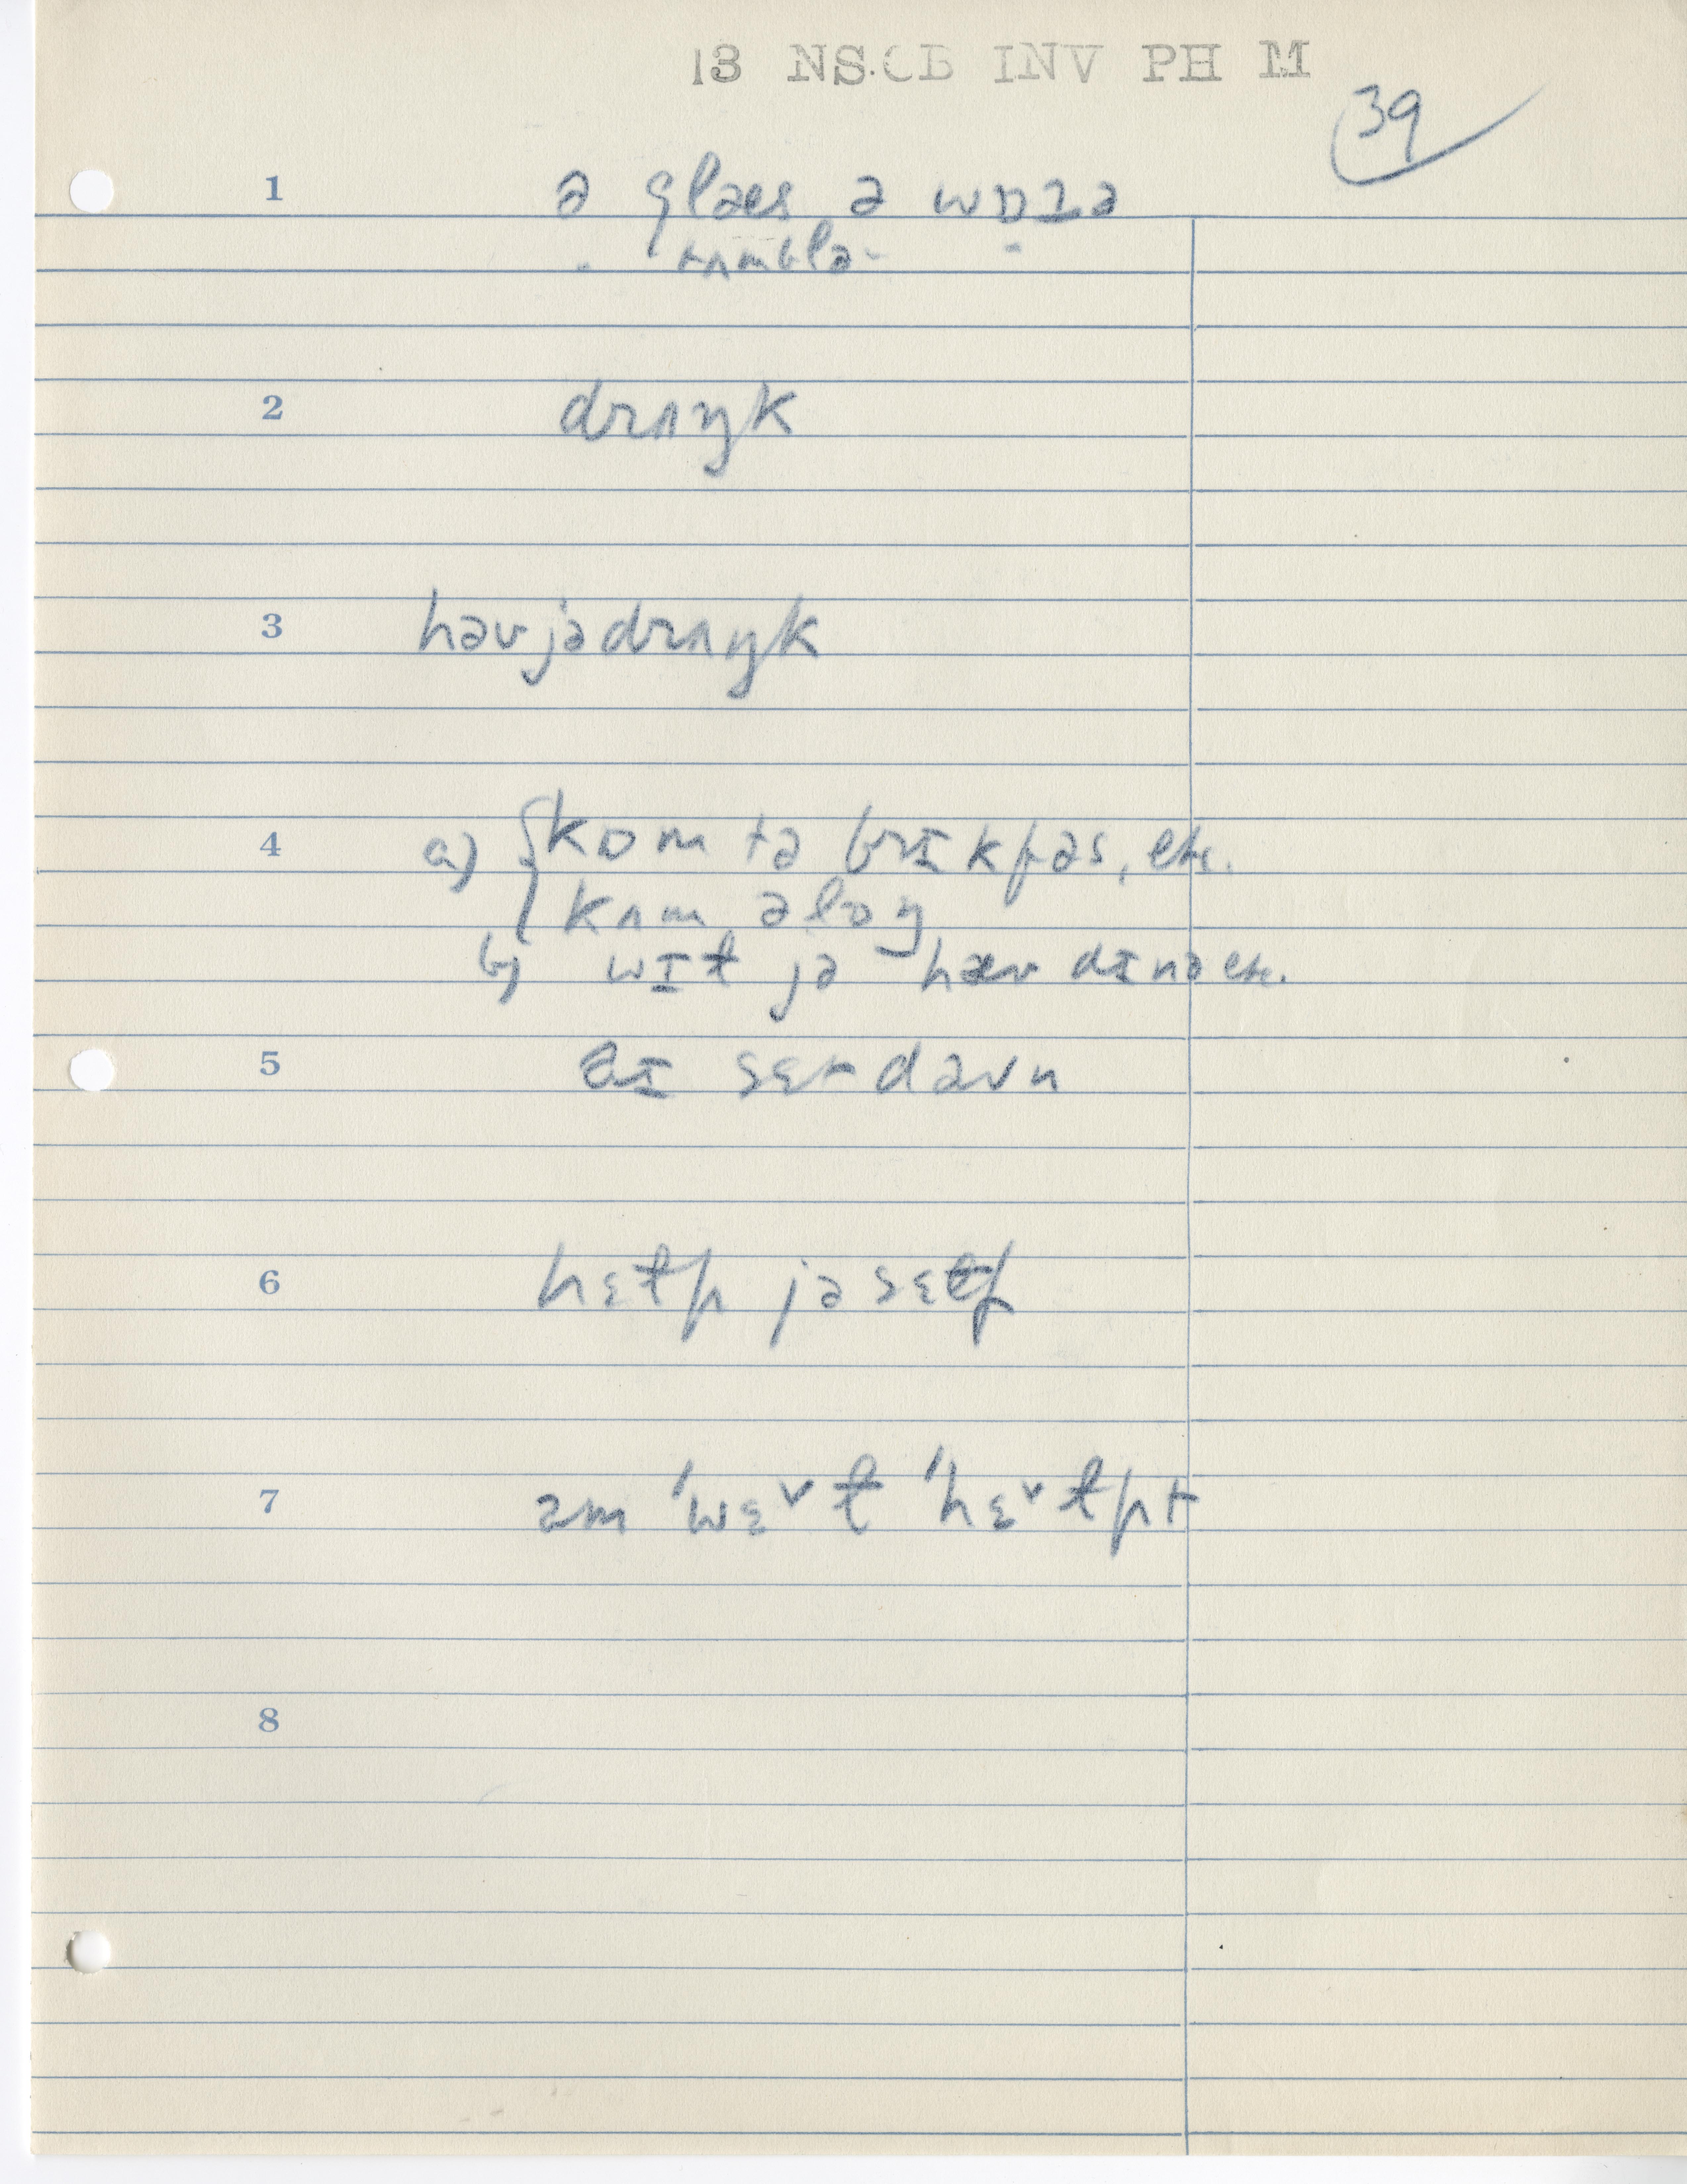 13 NS.CB INV PH M
39
1 ə glæs ə wɒɾə
tʌmblə
2 drʌŋk
3 həvjədrʌŋk
4 a) { kɒm tə brɪkfəs, etc.
kʌm əlɒŋ
b) wɪɫ jə hæv dɪnə etc.
5 əɪ sɛt davn
6 hɛɫp jəsɛɫf
7 am ˈwɛᵛɫ ˈhɛᵛɫpt
8